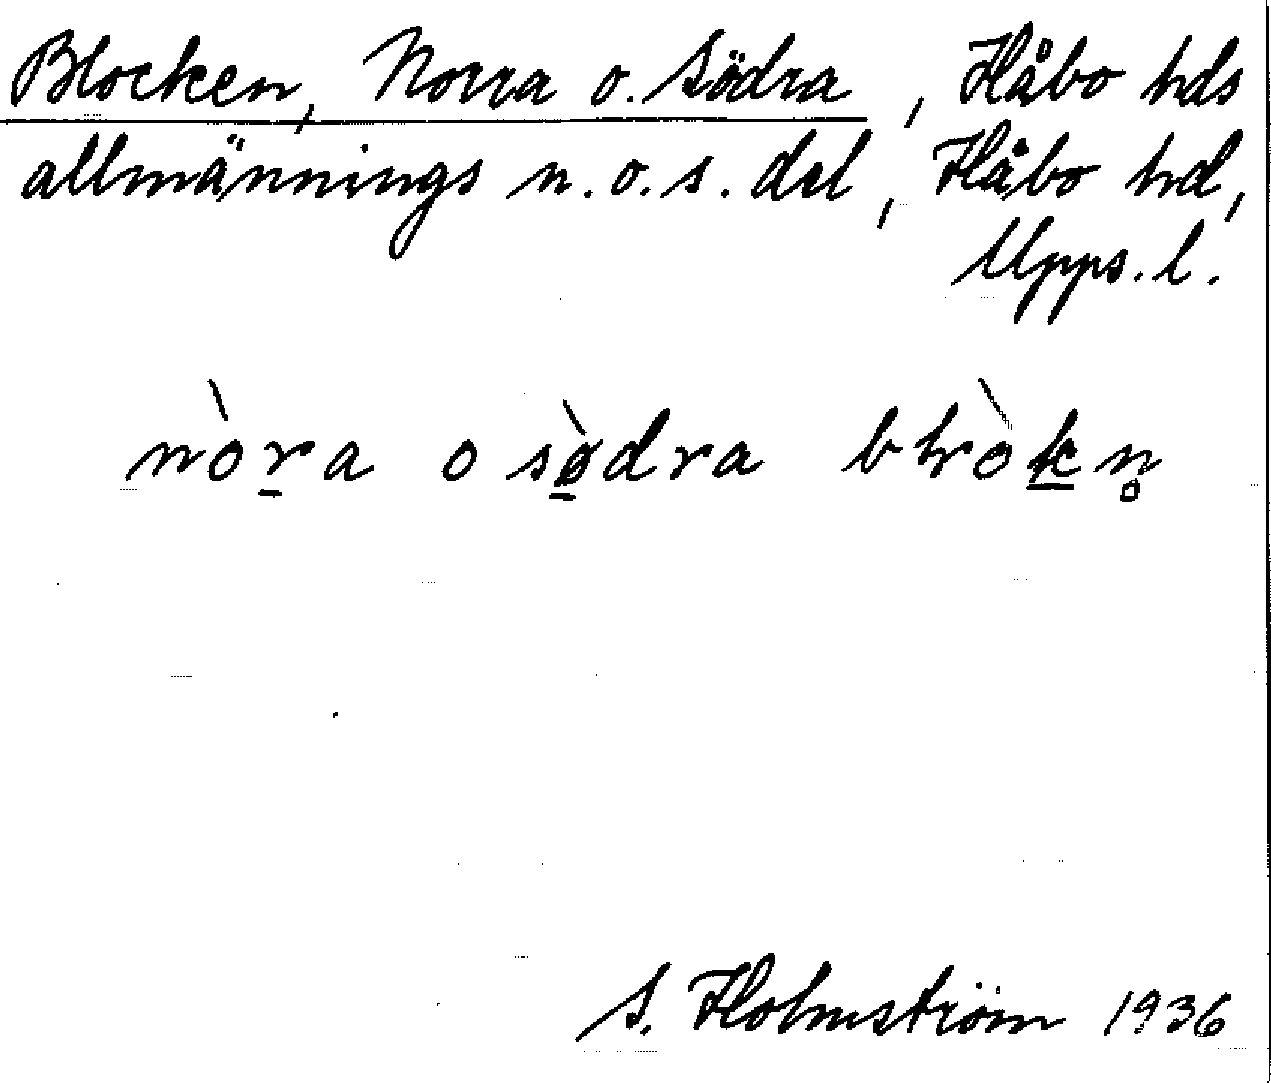 Blocken, Norra o. Södra, Håbo hds
allmännings n. o. s. del, Håbo hd,
Upps. l.
nòra o sødra
S. Holmström 1936